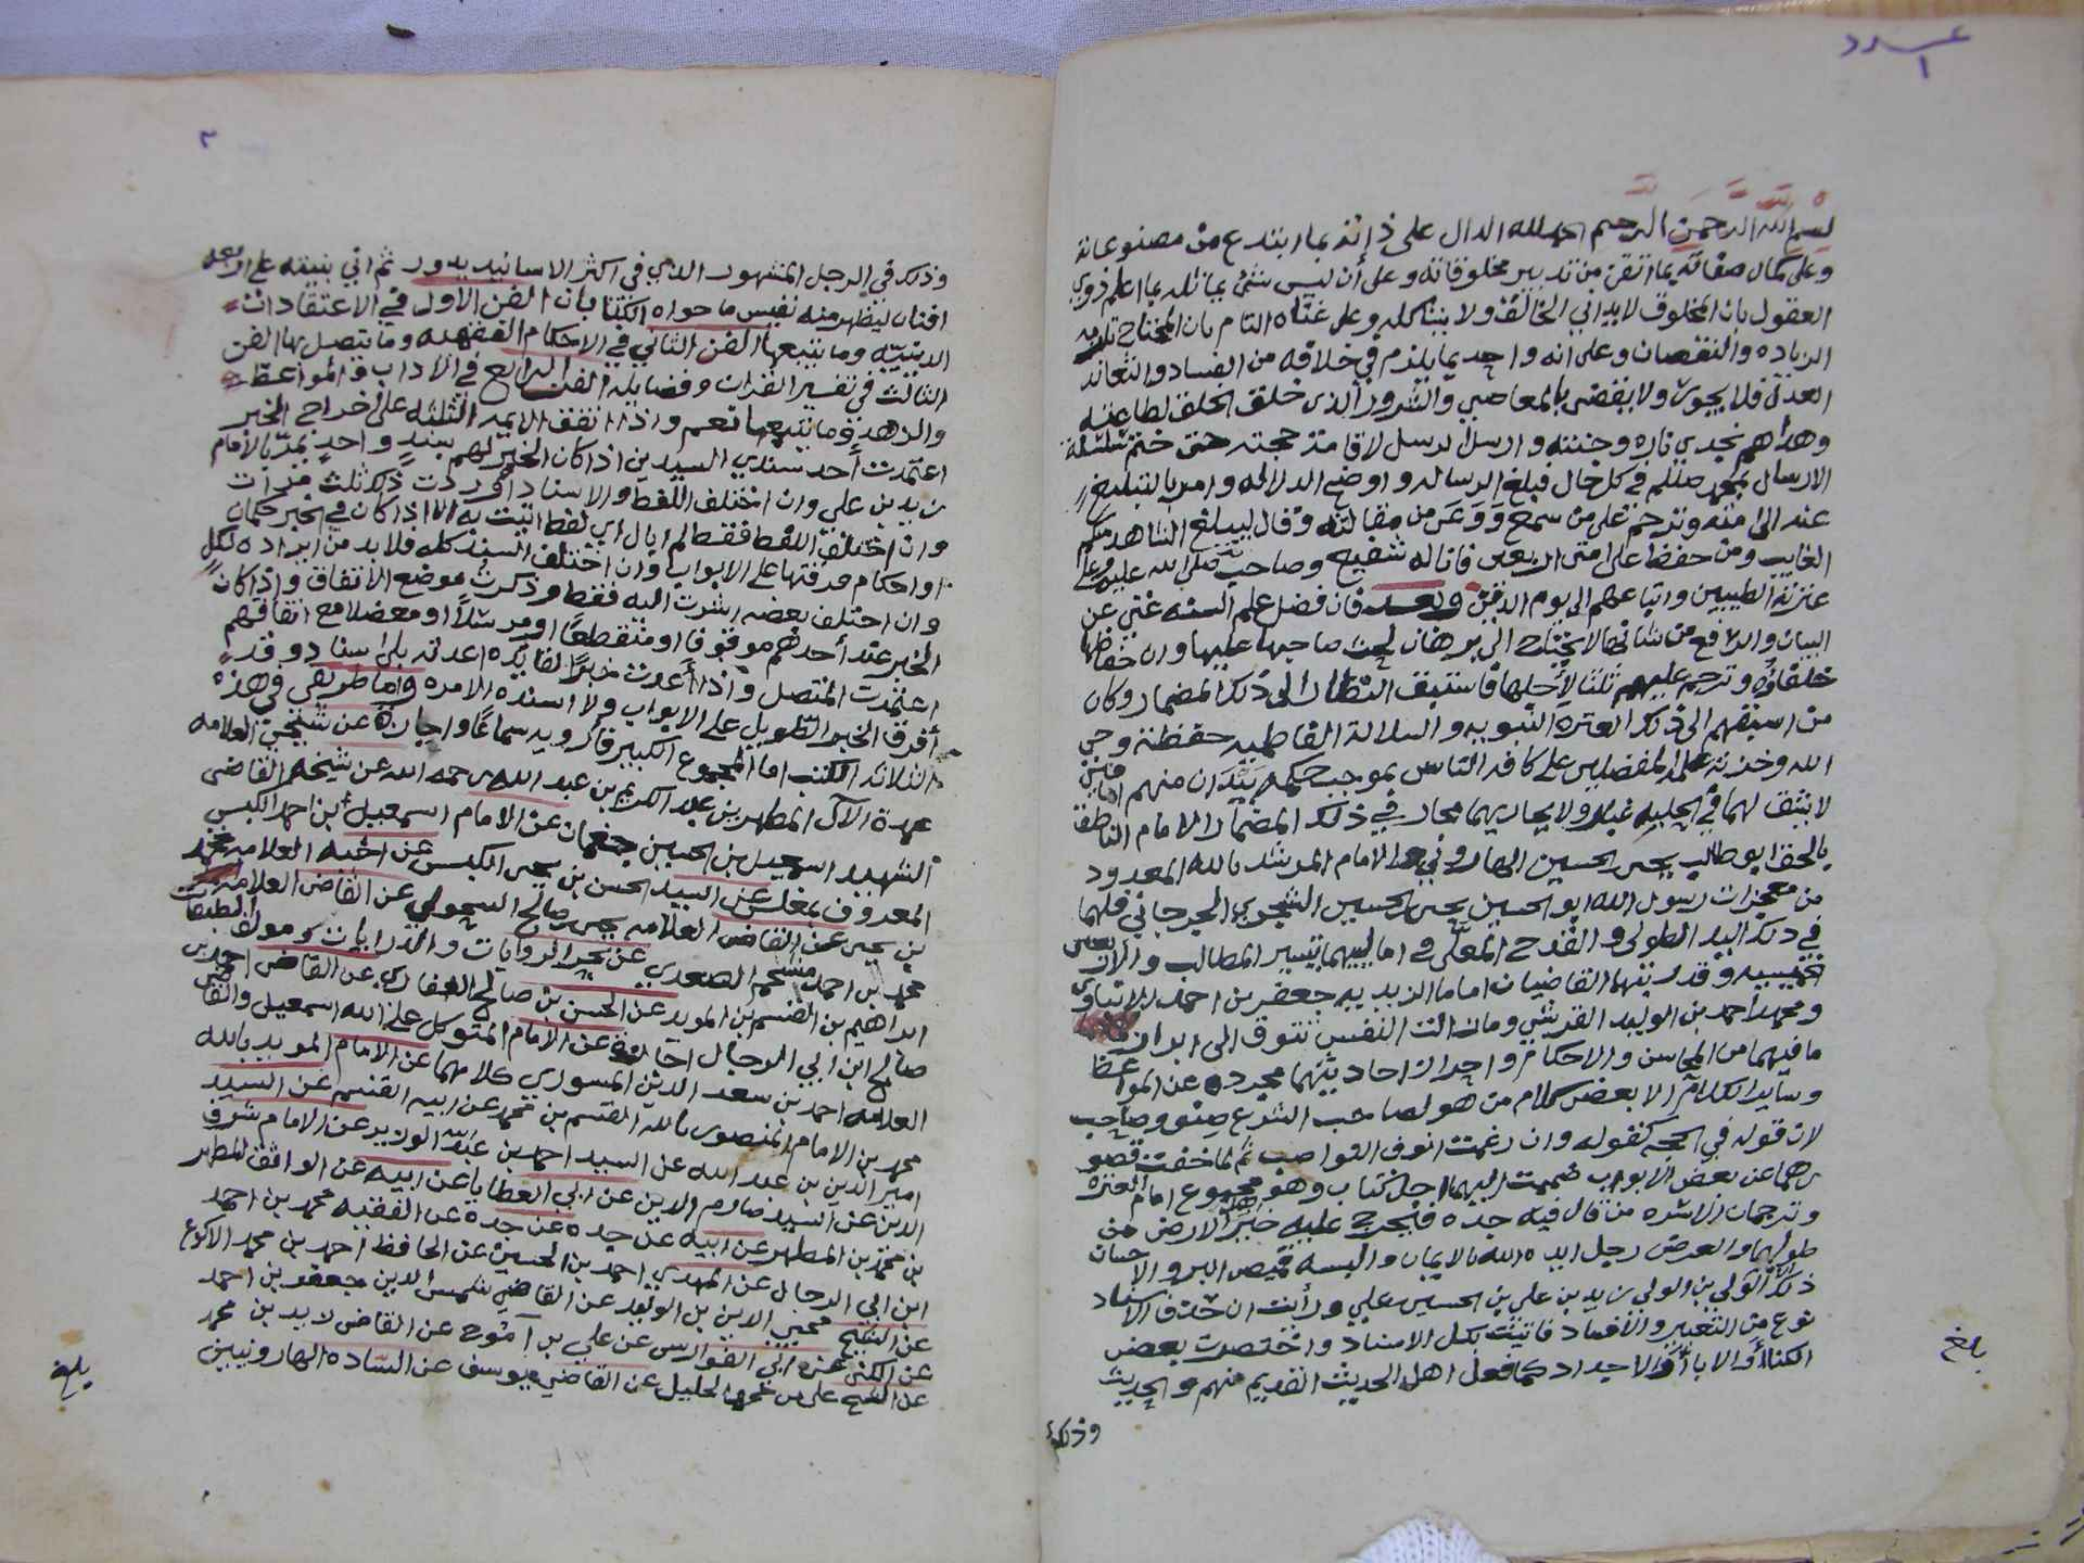 عدد
١
بسم الله الرحمن الرحيم الحمد لله الدال على ذاته بما ابتدع من مصنوعاته
وعلى كمال صفاته بما اتقن من تدبير مخلوقاته وعلى أن ليس شئ يماثله بما اعلم ذوي
العقول بان المخلوق لا يداني الخالق ولا يشاكله وعلى غناه التام بان المحتاج
الزياده والنقصان وعلى انه واحد بما يلزم في خلافه من الفساد والتعاند
العدل فلا يجوز ولا يقضي بالمعاصي والشرور الذي خلق الخلق لطاعته
وهداهم نجدي ناره وجنته وارسل الرسل لاقامة حجته حتى ختم سلسلة
الارسال بمحمد صللم في كل حال فبلغ الرساله واوضح الدلاله وامر بالتبليغ
عنه الى امته وترحم على من سمع ووعى من مقالته وقال ليبلغ الشاهد منكم
الغايب ومن حفظ على امتي اربعين فانا له شفيع وصاحب صلى الله عليه وعلى
عترته الطيبين واتباعهم الى يوم الدين وبعد فان فضل علم السنه غني عن
البيان والرافع من شانها لا يحتاج الى برهان لحث صاحبها عليها وان حفاظها
خلفاؤه وترحم عليهم ثلثا لاجلها فاستبق النظار الى ذلك المضمار وكان
من اسبقهم الى ذلك العترة النبويه والسلالة الفاطميه حفظة وحي
الله وخزنة علمه المفضلين على كافة الناس بموجب حكمه بَيْدَ ان منهم امامين
لا يشق لهما في الحلبه غبار ولا يجاريهما مجار في ذلك المضمار الامام الناطق
بالحق ابو طالب يحيى بن الحسين الهاروني والامام المرشد بالله المعدود
من معجزات رسول الله ابو الحسين يحيى بن الحسين الشجري الجرجاني فلهما
في ذلك اليد الطولى والقدح المعلى في اماليهما بتيسير المطالب والاربعين
خميسيه وقد رتبها القاضيان اماما الزيديه جعفر بن احمد الابناوي
ومحمد احمد بن الوليد القرشي وما زالت النفس تتوق الى ابراز
ما فيهما من المحاسن والاحكام واحراز احاديثهما مجرده عن المواعظ
وساير الكلام الا بعض كلام من هو لصاحب الشرع صنو وصاحب
لان قوله في الحجه كقوله وان رغمت انوف النواصب ثم لما خفت قصو
رهما عن بعض الابواب ضممت اليهما اجل كتاب وهو مجموع امام العتره
وترجمان الاسره من قال فيه جده فيخرج عليه خير اهل الارض من
طولها والعرض رجل ايده الله بالايمان والبسه قميص البر والاحسان
ذلك الولي بن الولي زيد بن علي بن الحسين بن علي ورأيت ان حذف الاسناد
نوع من التغيير والافساد فاتيت بكل الاسناد واختصرت بعض
الكنا أو الابا أو الاجداد كما فعل اهل الحديث القديم منهم والحديث
وذلك
بلغ
٢
وذلك في الرجل المشهور الذي في اكثر الاسانيد يدور ثم اني بنيته على اربعه
افنان ليظهر منه نفيس ما حواه الكتاب بان الفن الاول في الاعتقادات
الدينيه وما يتبعها الفن الثاني في الاحكام الفقهيه وما يتصل بها الفن
الثالث في تفسير القران وفضايله الفن الرابع في الاداب والمواعظ
والزهد وما يتبعها نعم واذا اتفق الايمه الثلثه على اخراج الخبر
اعتمدت أحد سندي السيدين اذا كان الخبر لهم بسند واحد يمر بالامام
زيد بن علي وان اختلف اللفظ والاسناد اوردت ذلك ثلث مرات
وان اختلف اللفظ فقط لم ابال اي لفظ اثبت به الا اذا كان في الخبر حكمان
او احكام فرقتها على الابواب وان اختلف السند كله فلا بد من ايراده لكل
وان اختلف بعضه اشرت اليه فقط وذكرت موضع الاتفاق واذا كان
الخبر عند أحدهم موقوفا او منقطعا او مرسلا او معضلا مع اتفاقهم
اعتمدت المتصل واذا أعدت خبرا لفايده اعدته بلا اسناد وقد
أفرق الخبر الطويل على الابواب ولا اسنده الا مره واما طريقي في هذه
الثلاثه الكتب اما المجموع الكبير فارويه سماعا واجازه عن شيخي العلامه
عمدة الآل المطهر بن عبد الكريم بن عبد الله رحمه الله عن شيخه القاضي
الشهيد اسمعيل بن الحسين جغمان عن الامام اسمعيل بن احمد الكبسي
المعروف بمغلس عن السيد الحسن بن يحيى الكبسي عن اخيه العلامه محمد
بن يحيى عن القاضي العلامه يحيى صالح السحولي عن القاضي العلامه
محمد بن احمد مشحم الصعدي عن بحر الروايات والدرايات ومولف الطبقات
ابراهيم بن القسم بن المويد عن الحسن بن صالح العفاري عن القاضي احمد بن
صالح ابن ابي الرجال اجازة عن الامام المتوكل على الله اسمعيل والقاضي
العلامه احمد بن سعد الدين المسوري كلاهما عن الامام المويد بالله
محمد بن الامام المنصور بالله القسم بن محمد عن ابيه القسم عن السيد
امير الدين بن عبد الله عن السيد احمد بن عبد الله الوزير عن الامام شرف
الدين عن السيد صارم الدين عن ابي العطايا عن ابيه عن الواثق المطهر
بن محمد بن المطهر عن ابيه عن جده عن جدة عن الفقيه محمد بن احمد
ابن ابي الرجال عن المهدي احمد بن الحسين عن الحافظ احمد بن محمد الاكوع
عن الشيخ محيي الدين بن الوليد عن القاضي شمس الدين جعفر بن احمد
عن الكني عن ابي الفوارس عن علي بن آموج عن القاضي زيد بن محمد
عن الشيخ علي بن محمد الخليل عن القاضي يوسف عن الساده الهارونيين
بلغ